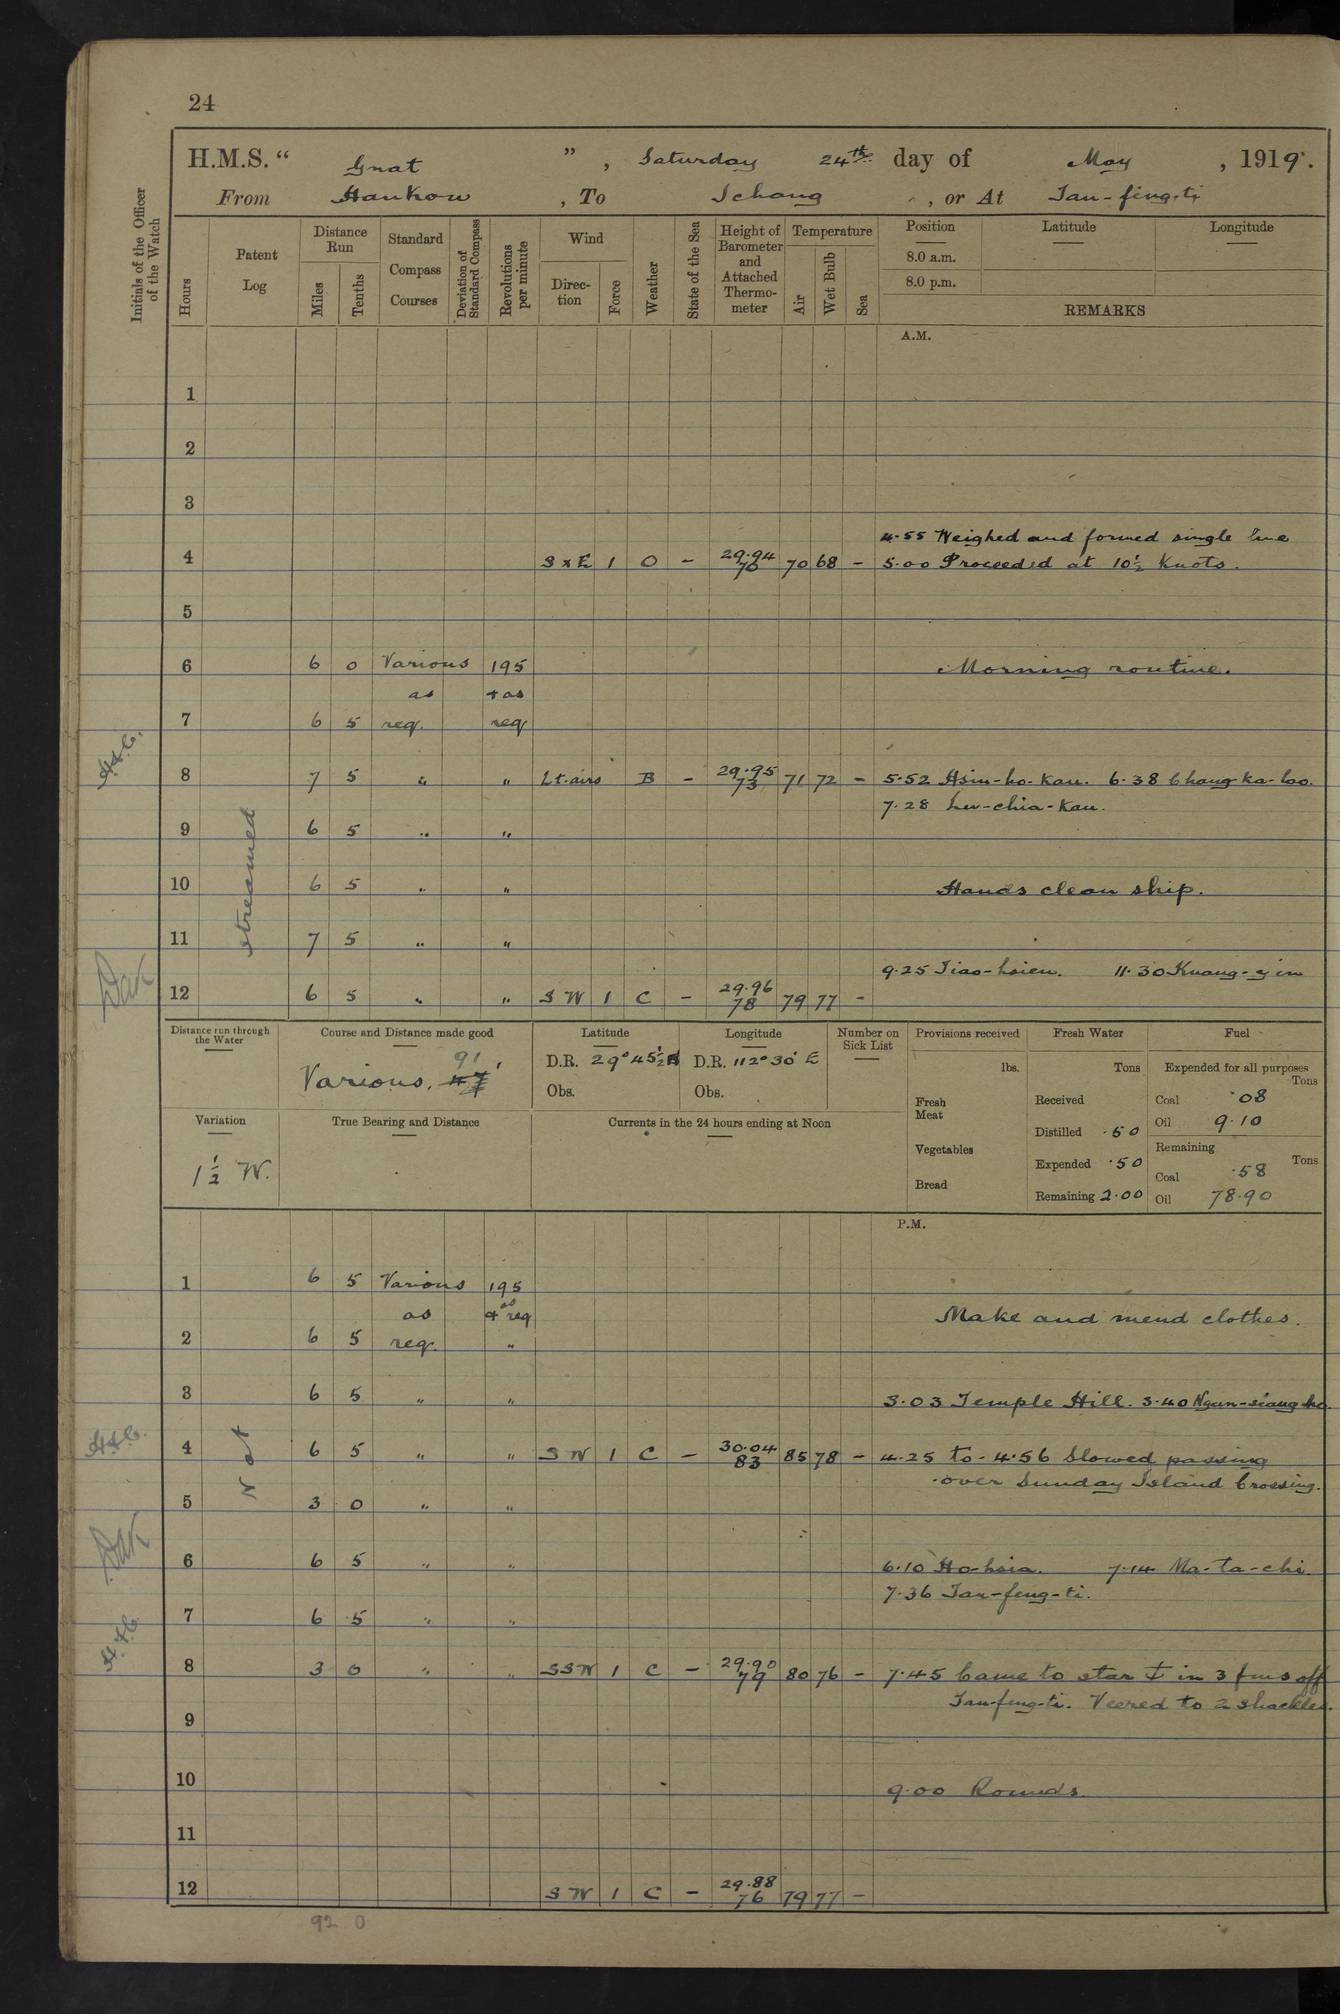 24
H.M.S. “ Gnat ” , Saturday 24th day of May , 1919.
From Hankow , To Ichang , or At Tan-fing-ti
Initials of the Officer of the Watch
Hours
Patent Log
Distance Run
Miles Tenths
Standard Compass Courses
Deviation of Standard Compass
Revolutions per minute
Wind
Direction Force
Weather
State of the Sea
Height of Barometer and Attached Thermometer
Temperature
Air Wet Bulb Sea
Position Latitude Longitude
8.0 a.m.
8.0 p.m.
REMARKS
A.M.
1
2
3
4.55 Weighed and formed single line
4 S x E 1 O - 29.94 70 70 68 - 5.00 Proceeded at 10½ Knots.
5
6 6 0 Various 195 Morning routine.
as + as
7 6 5 req. req
8 7 5 " " Lt. airs B - 29.95 73 71 72 - 5.52 Hsin-ho-kau. 6.38 Chang-ka-lao.
7.28 Lu-chia-kau.
9 6 5 " "
streamed
10 6 5 " " Hands clean ship.
11 7 5 " "
9.25 Tiao-hsien. 11.30 Kuang-yin
12 6 5 " " SW 1 C - 29.96 78 79 77 -
Distance run through the Water
Course and Distance made good
Various. 91'
Latitude
D.R. 29° 45½
Obs.
Longitude
D.R. 112° 30' E
Obs.
Number on Sick List
Provisions received
lbs.
Fresh Meat
Vegetables
Bread
Fresh Water
Tons
Received
Distilled .50
Expended .50
Remaining 2.00
Fuel
Expended for all purposes
Tons
Coal .08
Oil 9.10
Remaining
Tons
Coal .58
Oil 78.90
Variation
1½ W.
True Bearing and Distance
Currents in the 24 hours ending at Noon
P.M.
1 6 5 Various 195
as + as req Make and mend clothes.
2 6 5 req. "
3 6 5 " " 3.03 Temple Hill. 3.40 Ngan-siang-ho.
4 6 5 " " SW 1 C - 30.04 83 85 78 - 4.25 to 4.56 Slowed passing
over Sunday Island Crossing.
Not
5 3 0 " "
6 6 5 " " 6.10 Ho-hsia. 7.14 Ma-ta-chi.
7.36 Tan-feng-ti.
7 6 5 " "
8 3 0 " " SSW 1 C - 29.90 79 80 76 - 7.45 Came to star ⚓ in 3 fms off
Tan-feng-ti. Veered to 2 shackles.
9
10 9.00 Rounds.
11
12 SW 1 C - 29.88 76 79 77 -
92 0